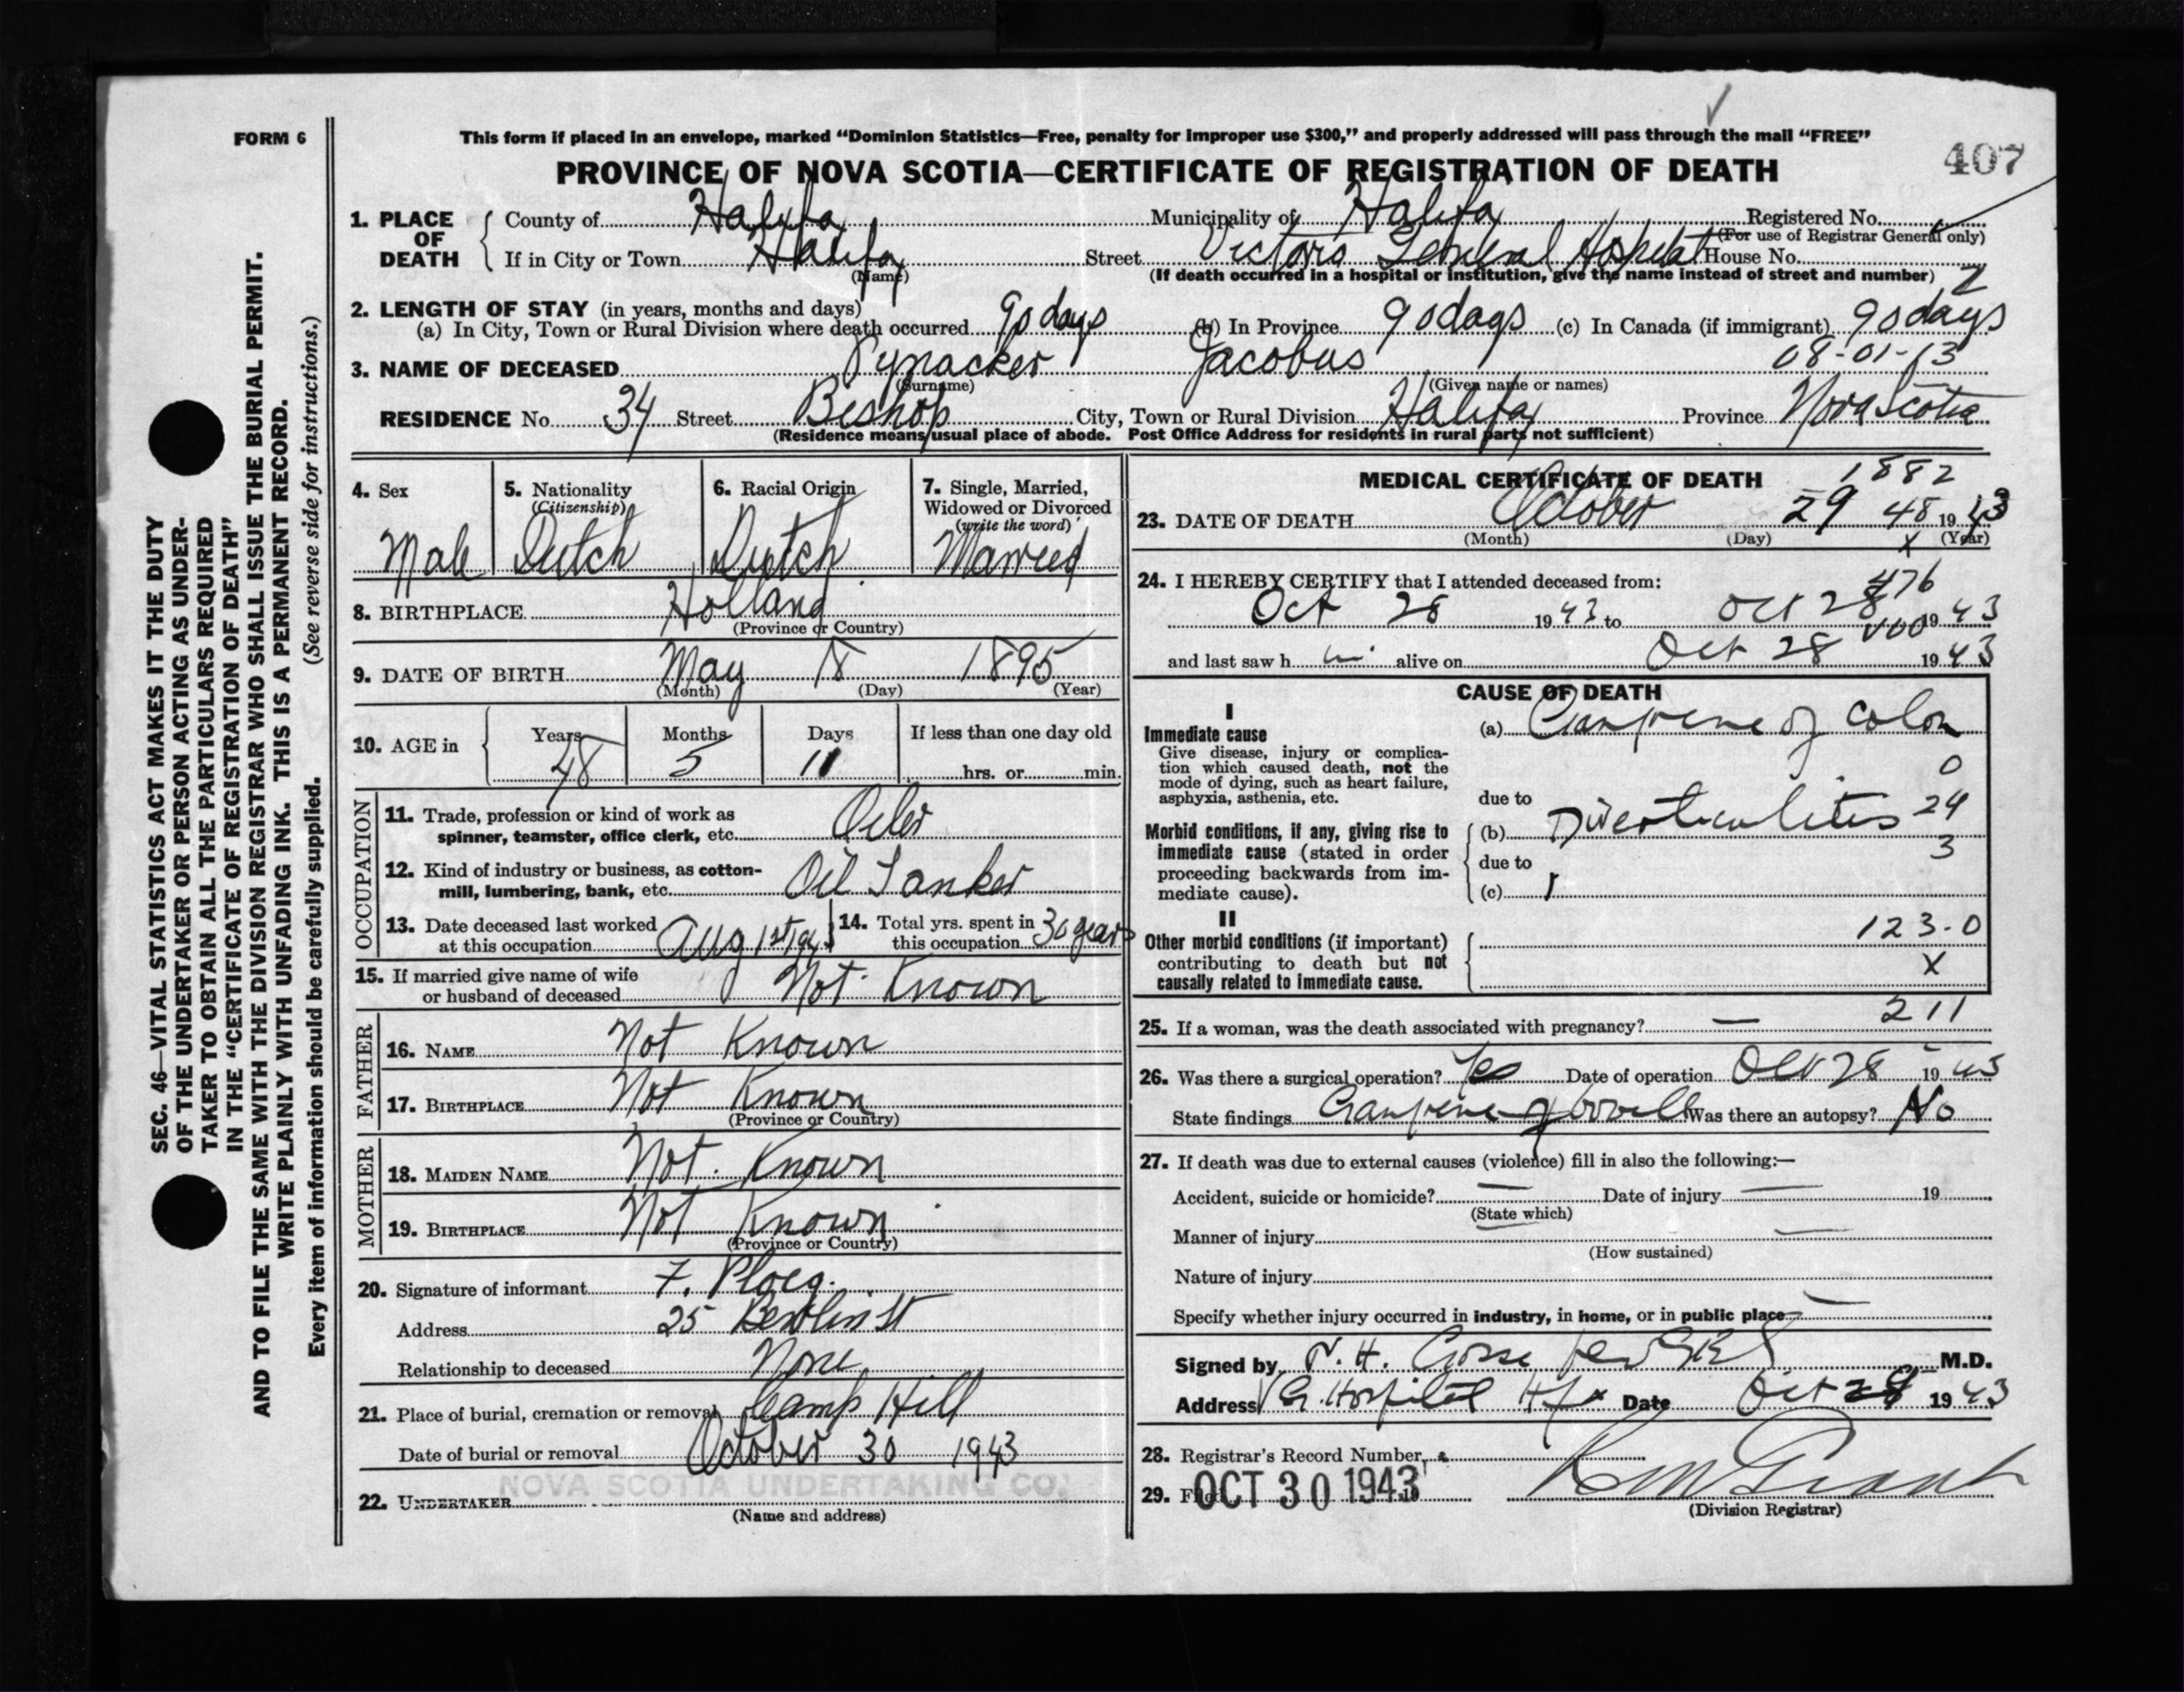 FORM 6
This form if placed in an envelope, marked “Dominion Statistics—Free, penalty for improper use $300,” and properly addressed will pass through the mail “FREE”
PROVINCE OF NOVA SCOTIA—CERTIFICATE OF REGISTRATION OF DEATH
407
1. PLACE OF DEATH
County of Halifax Municipality of Halifax Registered No.
(For use of Registrar General only)
If in City or Town Halifax Street Victoria General Hospital House No.
(Name) (If death occurred in a hospital or institution, give the name instead of street and number)
2. LENGTH OF STAY (in years, months and days)
(a) In City, Town or Rural Division where death occurred 90 days (b) In Province 90 days (c) In Canada (if immigrant) 90 days
08-01-13
3. NAME OF DECEASED Pynacker Jacobus
(Surname) (Given name or names)
RESIDENCE No. 34 Street Bishop City, Town or Rural Division Halifax Province Nova Scotia
(Residence means usual place of abode. Post Office Address for residents in rural parts not sufficient)
4. Sex Male
5. Nationality (Citizenship) Dutch
6. Racial Origin Dutch
7. Single, Married, Widowed or Divorced (write the word) Married
8. BIRTHPLACE Holland
(Province or Country)
9. DATE OF BIRTH May 18 1895
(Month) (Day) (Year)
10. AGE in Years 48 Months 5 Days 11 If less than one day old hrs. or min.
OCCUPATION
11. Trade, profession or kind of work as spinner, teamster, office clerk, etc. Oiler
12. Kind of industry or business, as cotton-mill, lumbering, bank, etc. Oil Tanker
13. Date deceased last worked at this occupation Aug 1st 1943
14. Total yrs. spent in this occupation 30 years
15. If married give name of wife or husband of deceased Not Known
FATHER
16. NAME Not Known
17. BIRTHPLACE Not Known
(Province or Country)
MOTHER
18. MAIDEN NAME Not Known
19. BIRTHPLACE Not Known
(Province or Country)
20. Signature of informant F. Ploeg.
Address 25 St
Relationship to deceased None
21. Place of burial, cremation or removal Camp Hill
Date of burial or removal October 30 1943
NOVA SCOTIA UNDERTAKING CO.
22. UNDERTAKER
(Name and address)
MEDICAL CERTIFICATE OF DEATH
1882
23. DATE OF DEATH October 29 48 1943
(Month) (Day) X (Year)
24. I HEREBY CERTIFY that I attended deceased from:
476
Oct 28 1943 to Oct 28 1943
and last saw h im alive on Oct 28 1943
CAUSE OF DEATH
I
Immediate cause
Give disease, injury or complication which caused death, not the mode of dying, such as heart failure, asphyxia, asthenia, etc.
(a) Gangrene of colon
0
due to
Morbid conditions, if any, giving rise to immediate cause (stated in order proceeding backwards from immediate cause).
(b) Diverticulitis 24
3
due to
(c)
II
Other morbid conditions (if important) contributing to death but not causally related to immediate cause.
123.0
X
211
25. If a woman, was the death associated with pregnancy? —
26. Was there a surgical operation? Yes Date of operation Oct 28 1943
State findings Gangrene of bowel Was there an autopsy? No
27. If death was due to external causes (violence) fill in also the following:—
Accident, suicide or homicide? — Date of injury — 19
(State which)
Manner of injury —
(How sustained)
Nature of injury
Specify whether injury occurred in industry, in home, or in public place —
Signed by N. H. Gosse M.D.
Address V G. Hospital Hfx Date Oct 1943
28. Registrar's Record Number
29. Filed OCT 30 1943
(Division Registrar)
SEC. 46—VITAL STATISTICS ACT MAKES IT THE DUTY
OF THE UNDERTAKER OR PERSON ACTING AS UNDER-
TAKER TO OBTAIN ALL THE PARTICULARS REQUIRED
IN THE “CERTIFICATE OF REGISTRATION OF DEATH”
AND TO FILE THE SAME WITH THE DIVISION REGISTRAR WHO SHALL ISSUE THE BURIAL PERMIT.
WRITE PLAINLY WITH UNFADING INK. THIS IS A PERMANENT RECORD.
Every item of information should be carefully supplied. (See reverse side for instructions.)